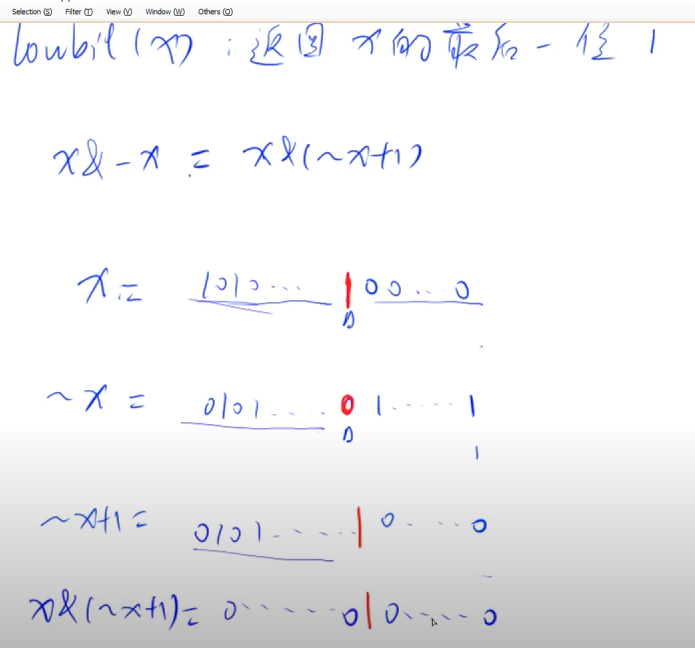 Selection (S) Filter (T) View (V) Window (W) Others (O)
lowbit(x) : 返回 x 的最后一位 1
x&-x = x&(~x+1)
x = 1010... 1 00...0
~x = 0101.... 0 1.....1
1
~x+1 = 0101..... 1 0....0
x&(~x+1) = 0.....010.....0